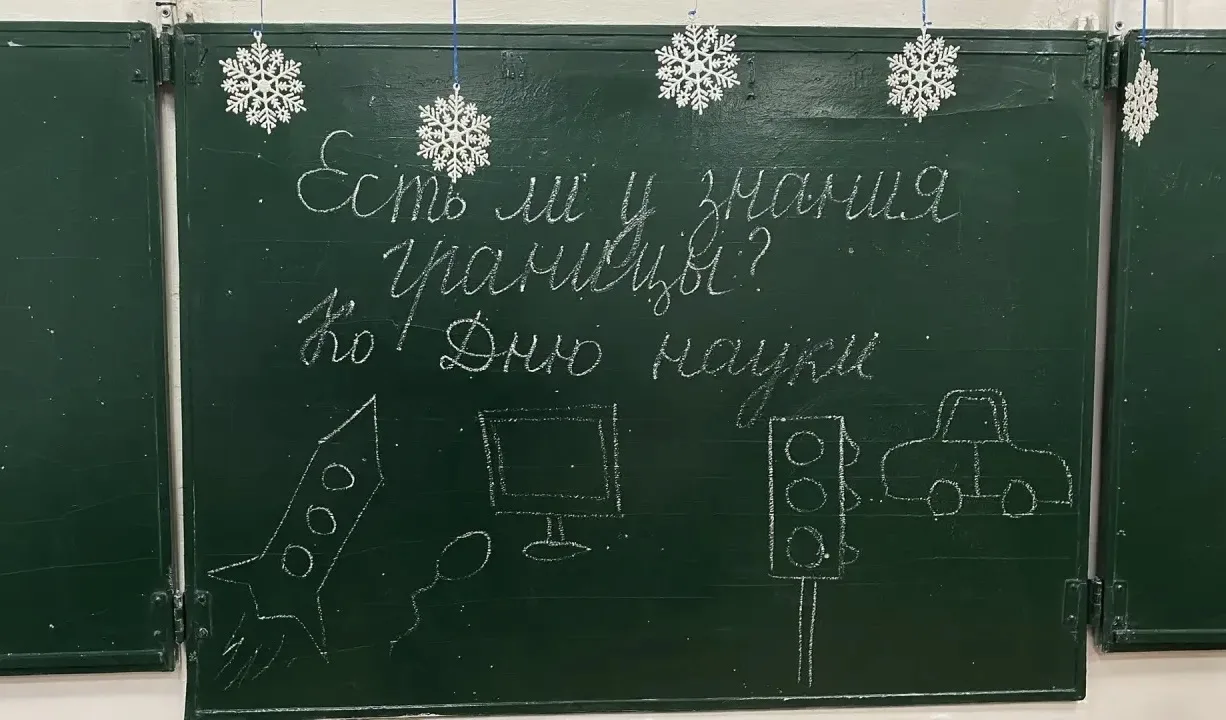 Есть ли у знания
границы?
Ко Дню науки